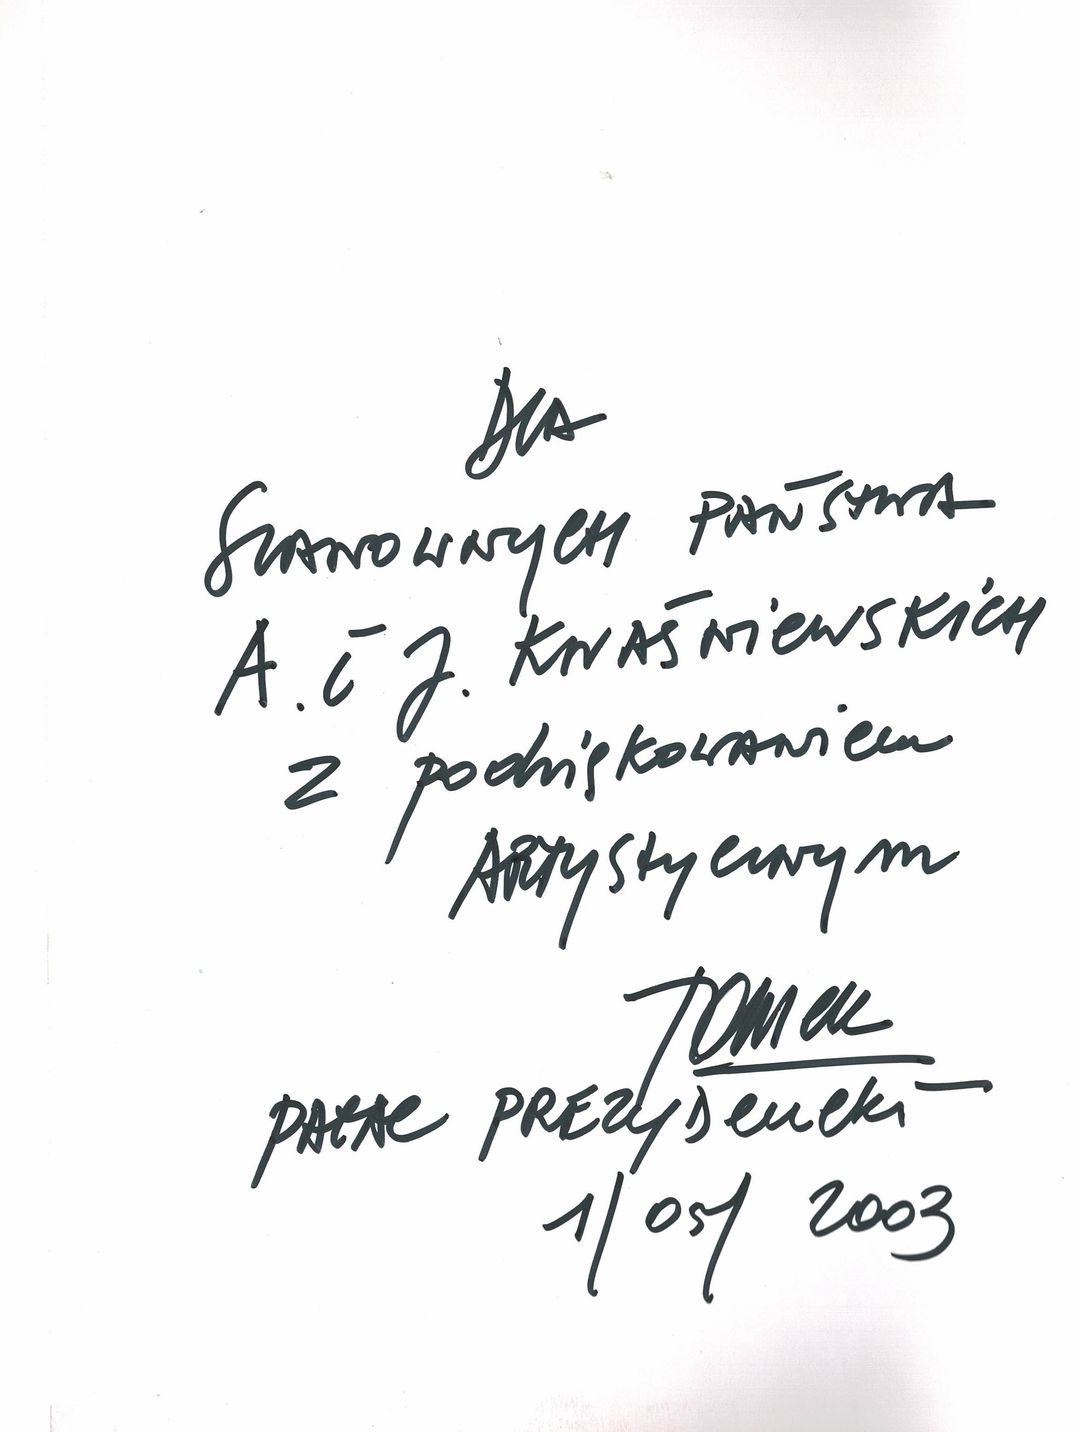 DLA
SZANOWNYCH PAŃSTWA
A. i J. KWAŚNIEWSKICH
Z podziękowaniem
ARTystycznym
TOMEK
PAŁAC PREZYDENCKI
1/05/2003